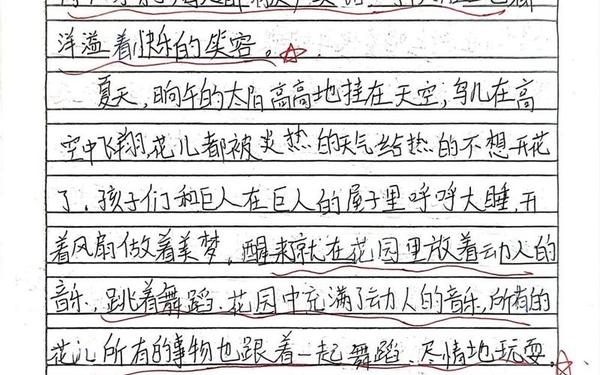 洋溢着快乐的笑容。
夏天,晌午的太阳高高地挂在天空,鸟儿在高
空中飞翔,花儿都被炎热的天气给热的不想开花
了,孩子们和巨人在巨人的屋子里呼呼大睡,开
着风扇做着美梦,醒来就在花园里放着动人的
音乐,跳着舞蹈、花园中充满了动人的音乐,所有的
花儿所有的事物也跟着一起舞蹈、尽情地玩耍。